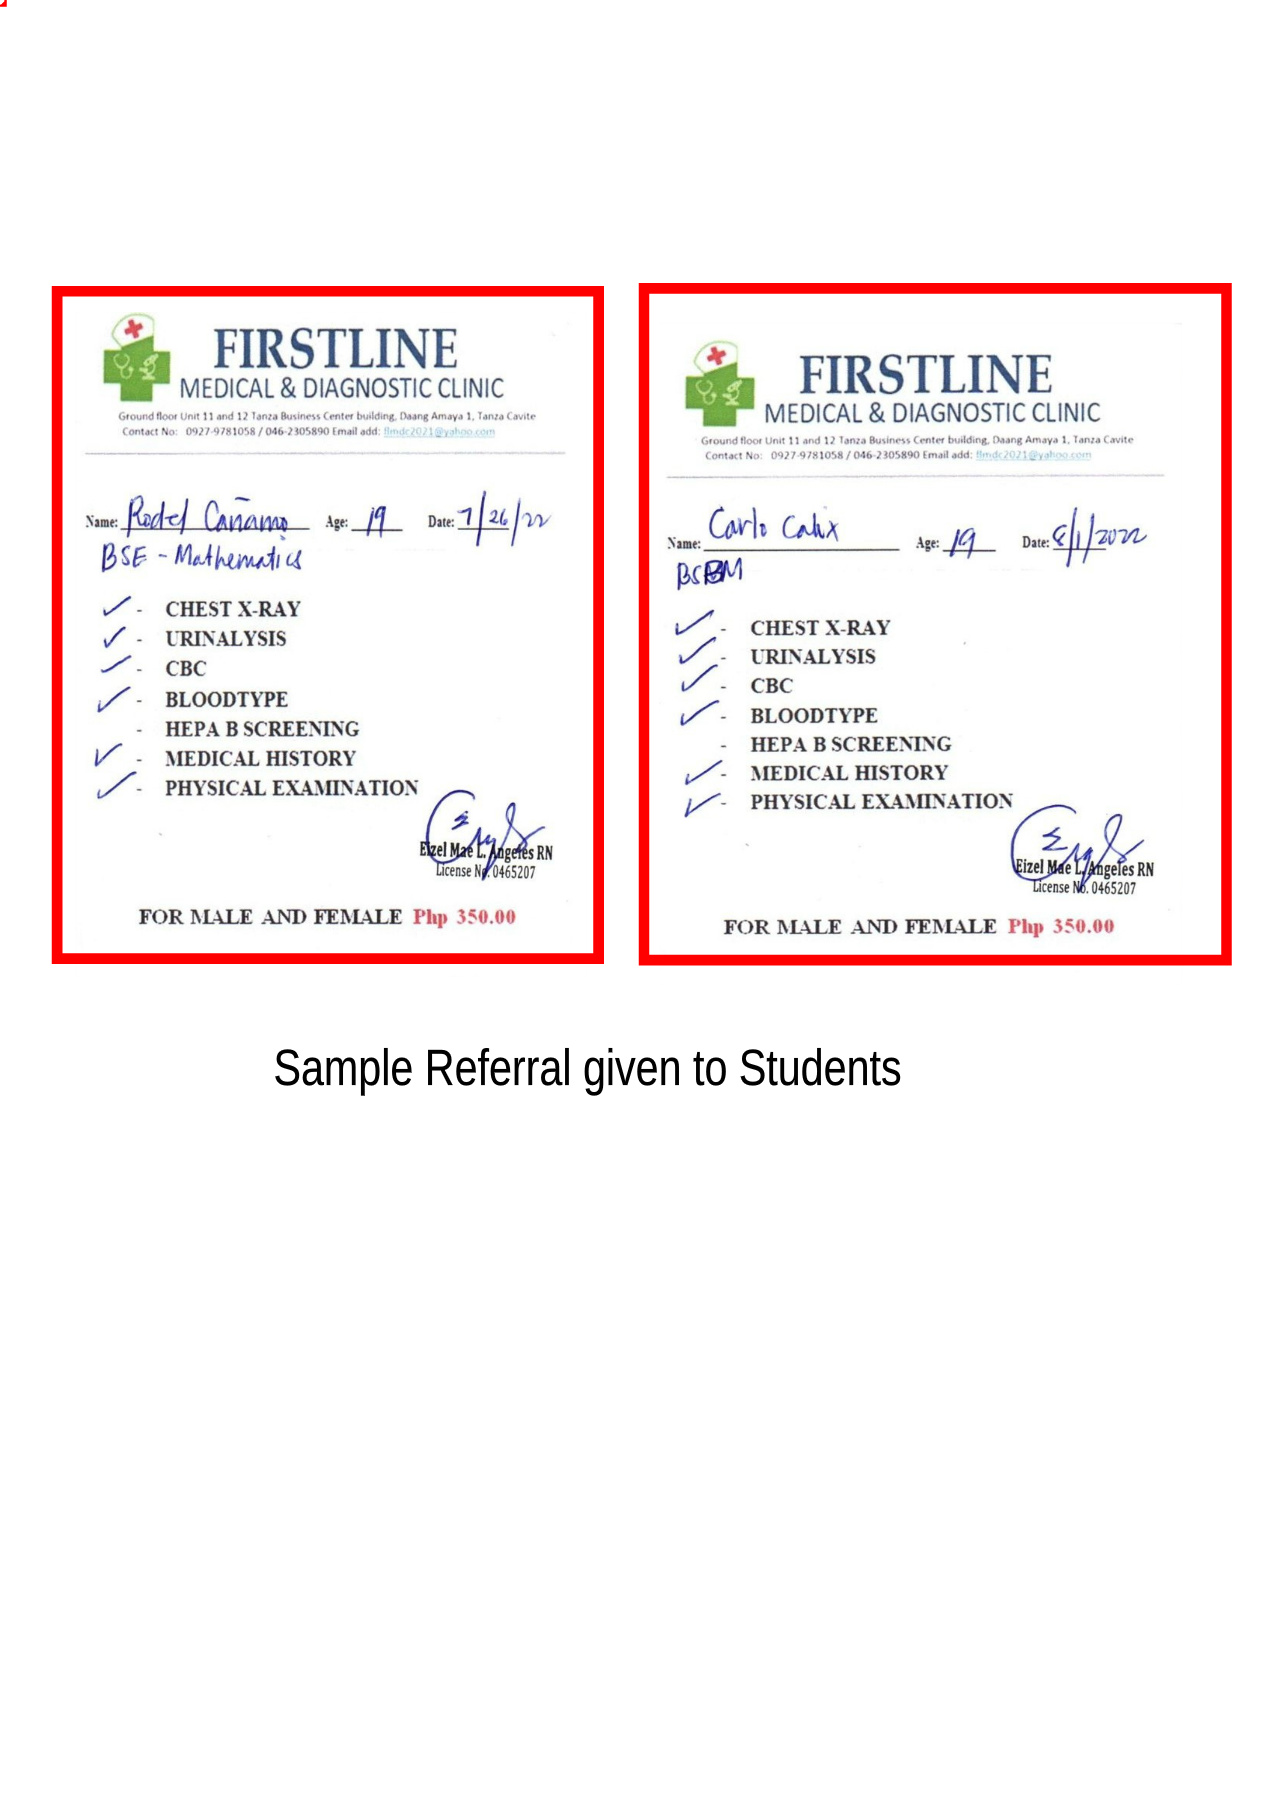 FIRSTLINE
MEDICAL & DIAGNOSTIC CLINIC
Ground floor Unit 11 and 12 Tanza Business Center building, Daang Amaya 1, Tanza Cavite
Contact No: 0927-9781058 / 046-2305890 Email add: flmdc2021@yahoo.com
Name: Rodel Cañamo Age: 19 Date: 7/26/22
BSE - Mathematics
- CHEST X-RAY
- URINALYSIS
- CBC
- BLOODTYPE
- HEPA B SCREENING
- MEDICAL HISTORY
- PHYSICAL EXAMINATION
Eizel Mae L. Angeles RN
License No. 0465207
FOR MALE AND FEMALE Php 350.00
FIRSTLINE
MEDICAL & DIAGNOSTIC CLINIC
Ground floor Unit 11 and 12 Tanza Business Center building, Daang Amaya 1, Tanza Cavite
Contact No: 0927-9781058 / 046-2305890 Email add: flmdc2021@yahoo.com
Name: Carlo Calix Age: 19 Date: 8/1/2022
BSBM
- CHEST X-RAY
- URINALYSIS
- CBC
- BLOODTYPE
- HEPA B SCREENING
- MEDICAL HISTORY
- PHYSICAL EXAMINATION
Eizel Mae L. Angeles RN
License No. 0465207
FOR MALE AND FEMALE Php 350.00
Sample Referral given to Students